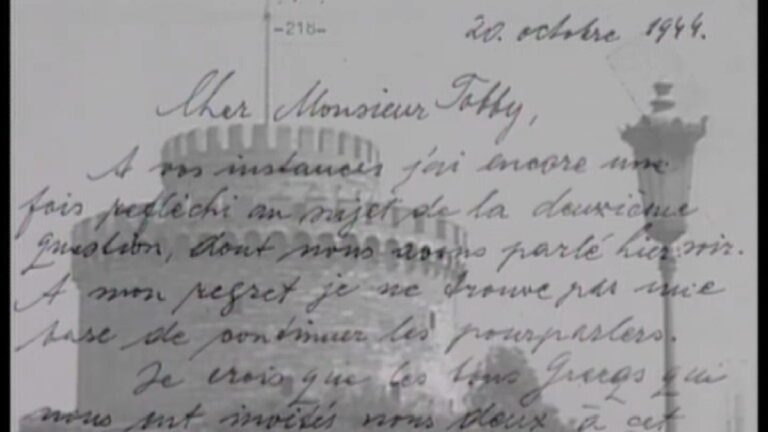 -218-
20. octobre 1944.
Cher Monsieur Tobby,
A vos instances j'ai encore une
fois refléchi au sujet de la deuxième
question, dont nous avons parlé hier soir.
A mon regret je ne trouve pas une
base de continuer les pourparlers.
Je crois que les bons Grecqs qui
nous ont invités nous deux à cet